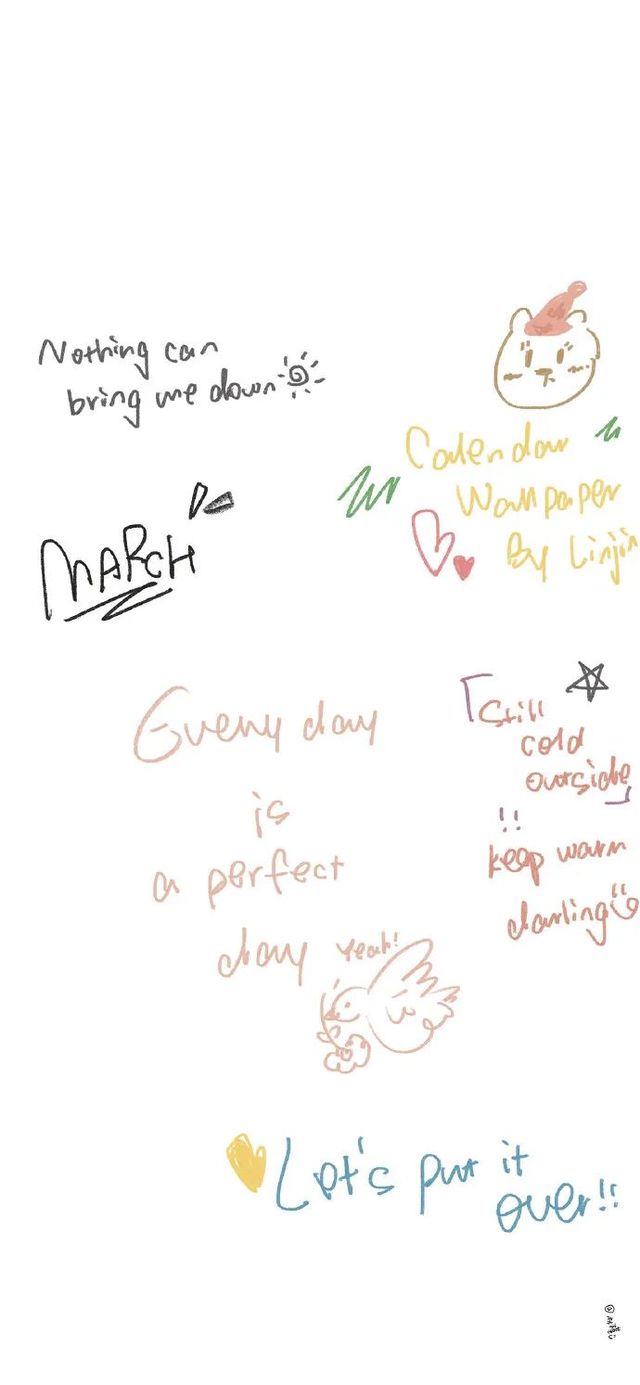 Nothing can
bring me down
MARCH
Calendar
Wallpaper
By Linjin
Every day
is
a perfect
day yeah!
「Still
cold
outside」
!!
keep warm
darling
Let's put it
over!!